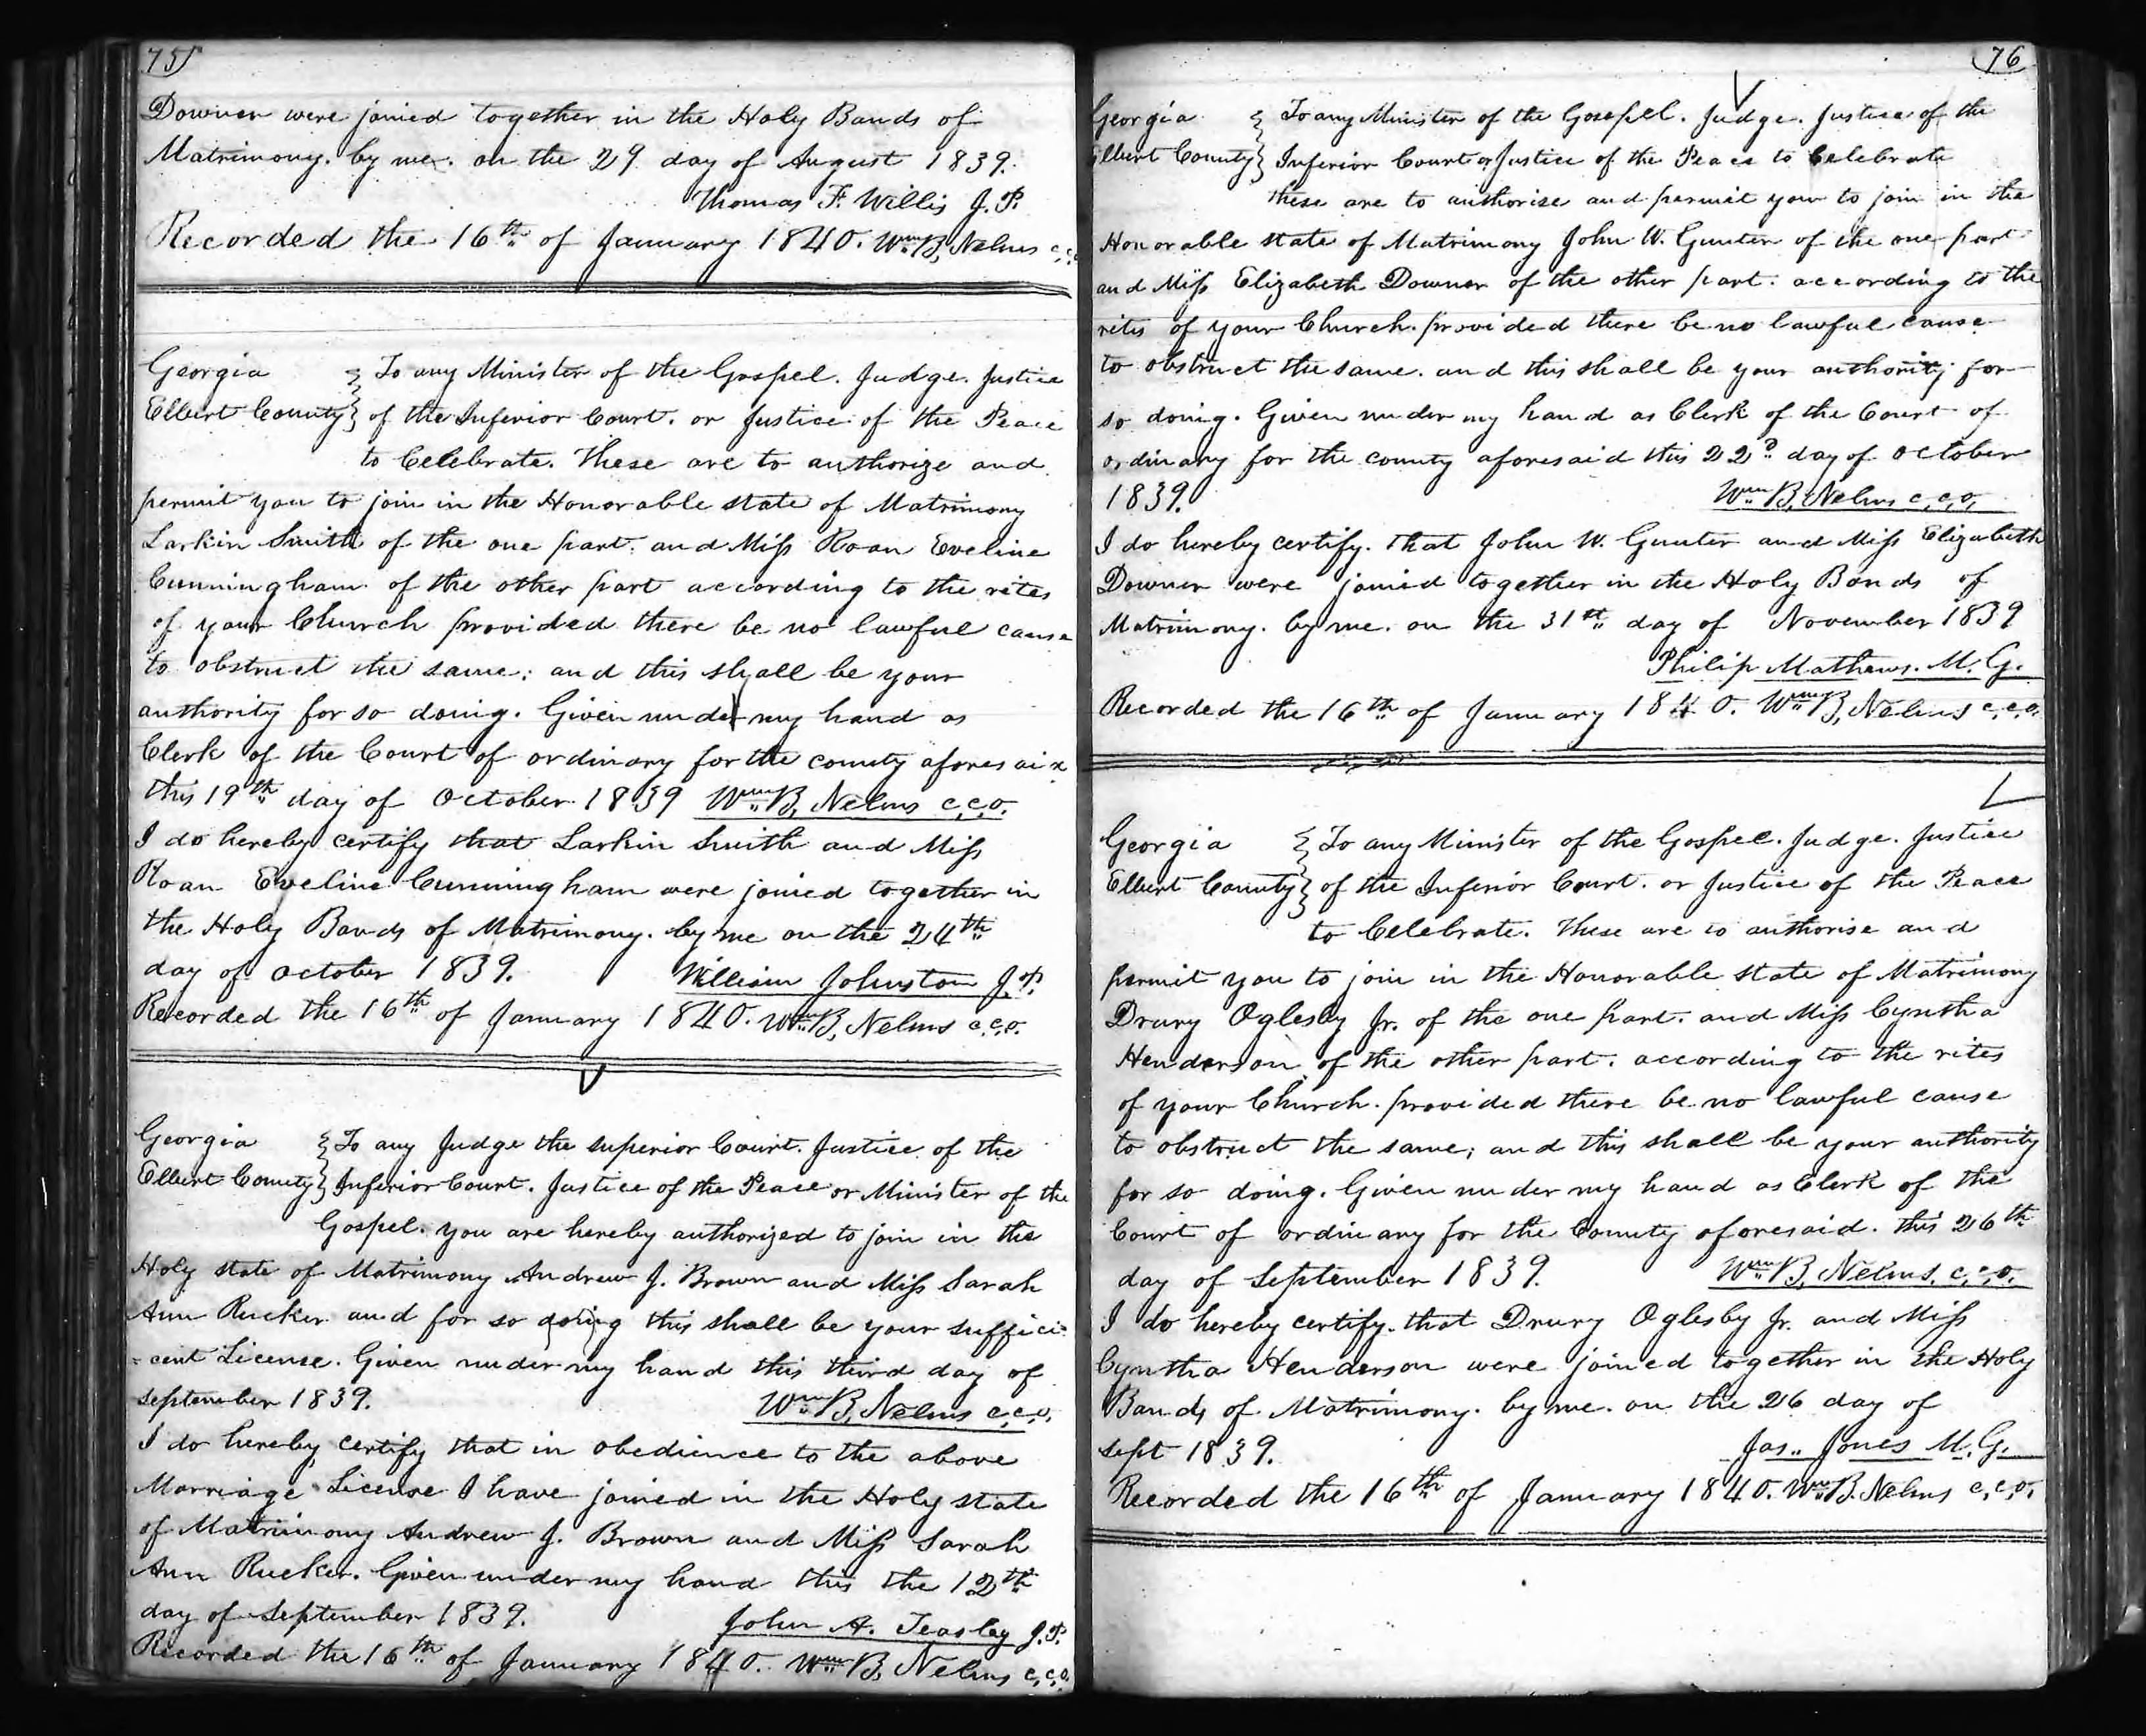 75
Downer were joined together in the Holy Bands of
Matrimony. by me. on the 29 day of August 1839.
Thomas F. Willis J.P.
Recorded the 16th of January 1840. Wm B, Nelms c,c,
Georgia } To any Minister of the Gospel. Judge. Justice
Elbert County } of the Inferior Court. or Justice of the Peace
to Celebrate. These are to authorize and
permit you to join in the Honorable state of Matrimony
Larkin Smith of the one part. and Miss Roan Eveline
Cunningham of the other part according to the rites
of your Church provided there be no lawful cause
to obstruct the same; and this shall be your
authority for so doing. Given under my hand as
Clerk of the Court of ordinary for the county aforesaid
this 19th day of October 1839 Wm B, Nelms c,c,o.
I do hereby certify that Larkin Smith and Miss
Roan Eveline Cunningham were joined together in
the Holy Bands of Matrimony. by me on the 24th
day of October 1839. William Johnston J.P.
Recorded the 16th of January 1840. Wm B, Nelms c,c,o.
Georgia } To any Judge the superior Court. Justice of the
Elbert County } Inferior Court. Justice of the Peace or Minister of the
Gospel. you are hereby authorized to join in the
Holy state of Matrimony Andrew J. Brown and Miss Sarah
Ann Rucker and for so doing this shall be your suffici=
=cent License. Given under my hand this third day of
September 1839. Wm B, Nelms c,c,o,
I do hereby certify that in obedience to the above
Marriage License I have joined in the Holy state
of Matrimony Andrew J. Brown and Miss Sarah
Ann Rucker. Given under my hand this the 12th
day of September 1839. John A. Teasley J.P.
Recorded the 16th of January 1840. Wm B, Nelms c,c,o,
76
Georgia } To any Minister of the Gospel. Judge. Justice of the
Elbert County } Inferior Court or Justice of the Peace to Celebrate
these are to authorise and permit you to join in the
Honorable state of Matrimony John W. Gunter of the one part
and Miss Elizabeth Downer of the other part. according to the
rites of your Church. provided there be no lawful cause
to obstruct the same. and this shall be your authority for
so doing. Given under my hand as Clerk of the Court of
ordinary for the county aforesaid this 22d day of October
1839. Wm B, Nelms c,c,o,
I do hereby certify. that John W. Gunter and Miss Elizabeth
Downer were joined together in the Holy Bonds of
Matrimony. by me. on the 31st day of November 1839
Philip Mathews. M.G.
Recorded the 16th of January 1840. Wm B, Nelms c,c,o,
Georgia } To any Minister of the Gospel. Judge. Justice
Elbert County } of the Inferior Court. or Justice of the Peace
to Celebrate. These are to authorise and
permit you to join in the Honorable state of Matrimony
Drury Oglesby Jr. of the one part. and Miss Cyntha
Henderson of the other part. according to the rites
of your Church. provided there be no lawful cause
to obstruct the same; and this shall be your authority
for so doing. Given under my hand as Clerk of the
Court of ordinary for the County aforesaid. this 26th
day of September 1839. Wm B, Nelms. c,c,o.
I do hereby certify. that Drury Oglesby Jr. and Miss
Cyntha Henderson were joined together in the Holy
Bands of Matrimony. by me. on the 26 day of
Sept 1839. Jas.. Jones M.G.
Recorded the 16th of January 1840. Wm B. Nelms c,c,o,